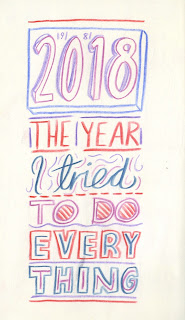 2018
THE YEAR
I tried
TO DO
EVERY
THING